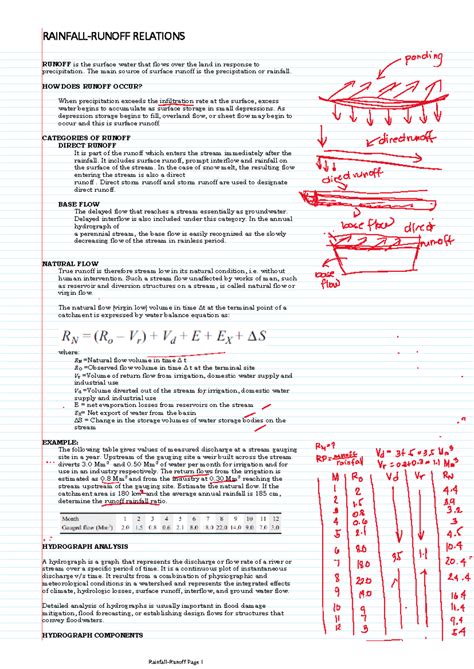 RAINFALL-RUNOFF RELATIONS
RUNOFF is the surface water that flows over the land in response to
precipitation. The main source of surface runoff is the precipitation or rainfall.
HOW DOES RUNOFF OCCUR?
When precipitation exceeds the infiltration rate at the surface, excess
water begins to accumulate as surface storage in small depressions. As
depression storage begins to fill, overland flow, or sheet flow may begin to
occur and this is surface runoff.
CATEGORIES OF RUNOFF
DIRECT RUNOFF
It is part of the runoff which enters the stream immediately after the
rainfall. It includes surface runoff, prompt interflow and rainfall on
the surface of the stream. In the case of snow melt, the resulting flow
entering the stream is also a direct
runoff. Direct storm runoff and storm runoff are used to designate
direct runoff.
BASE FLOW
The delayed flow that reaches a stream essentially as groundwater.
Delayed interflow is also included under this category. In the annual
hydrograph of
a perennial stream, the base flow is easily recognized as the slowly
decreasing flow of the stream in rainless period.
NATURAL FLOW
True runoff is therefore stream flow in its natural condition, i.e. without
human intervention. Such a stream flow unaffected by works of man, such
as reservoir and diversion structures on a stream, is called natural flow or
virgin flow.
The natural flow (virgin flow) volume in time Δt at the terminal point of a
catchment is expressed by water balance equation as:
R_N = (R_o − V_r) + V_d + E + E_X + ΔS
where:
R_N =Natural flow volume in time Δ t
R_O =Observed flow volume in time Δ t at the terminal site
V_r =Volume of return flow from irrigation, domestic water supply and
industrial use
V_d =Volume diverted out of the stream for irrigation, domestic water
supply and industrial use
E = net evaporation losses from reservoirs on the stream
E_X= Net export of water from the basin
ΔS = Change in the storage volumes of water storage bodies on the
stream
EXAMPLE:
The following table gives values of measured discharge at a stream gauging
site in a year. Upstream of the gauging site a weir built across the stream
diverts 3.0 Mm³ and 0.50 Mm³ of water per month for irrigation and for
use in an industry respectively. The return flows from the irrigation is
estimated as 0.8 Mm³ and from the industry at 0.30 Mm³ reaching the
stream upstream of the gauging site. Estimate the natural flow. If the
catchment area is 180 km² and the average annual rainfall is 185 cm,
determine the runoff rainfall ratio.
Month 1 2 3 4 5 6 7 8 9 10 11 12
Gauged flow (Mm³) 2.0 1.5 0.8 0.6 2.1 8.0 18.0 22.0 14.0 9.0 7.0 3.0
HYDROGRAPH ANALYSIS
A hydrograph is a graph that represents the discharge or flow rate of a river or
stream over a specific period of time. It is a continuous plot of instantaneous
discharge v/s time. It results from a combination of physiographic and
meteorological conditions in a watershed and represents the integrated effects
of climate, hydrologic losses, surface runoff, interflow, and ground water flow.
Detailed analysis of hydrographs is usually important in flood damage
mitigation, flood forecasting, or establishing design flows for structures that
convey floodwaters.
HYDROGRAPH COMPONENTS
ponding
direct runoff
direct runoff
base flow direct
runoff
base
flow
R_N = ?
runoff
rainfall
M R_O V_d V_r R_N
1 2 4.4
2 1.5 3.9
3 0.8 3.2
4 0.6 3
5 2.1 4.5
6 8.0 10.4
7 3.5 1.1 20.4
8 24.4
9 16.4
10
11
12
Rainfall-Runoff Page 1